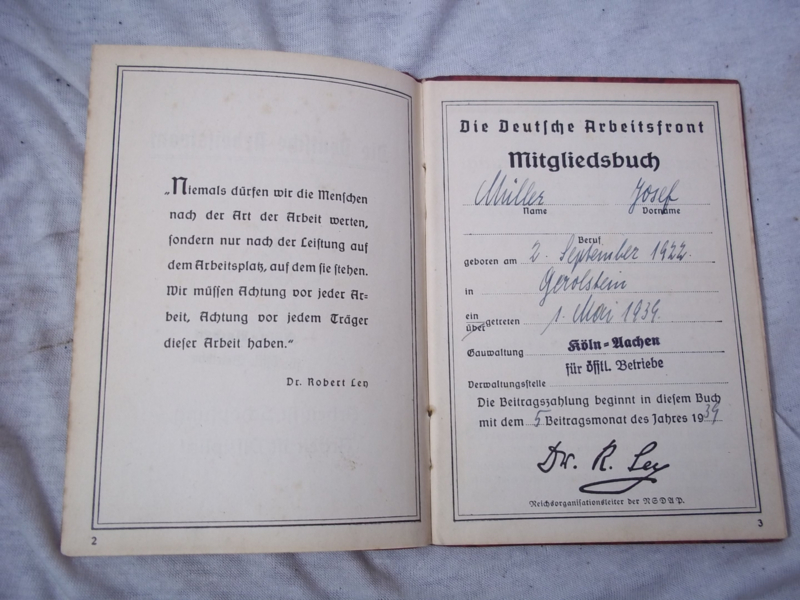 „Niemals dürfen wir die Menschen
nach der Art der Arbeit werten,
sondern nur nach der Leistung auf
dem Arbeitsplatz, auf dem sie stehen.
Wir müssen Achtung vor jeder Ar-
beit, Achtung vor jedem Träger
dieser Arbeit haben.“
Dr. Robert Ley
2
Die Deutsche Arbeitsfront
Mitgliedsbuch
Müller Josef
Name Vorname
Beruf
geboren am 2. September 1922.
in Gerolstein
ein
über getreten 1. Mai 1939.
Gauwaltung Köln-Aachen
für öfftl. Betriebe
Verwaltungsstelle
Die Beitragszahlung beginnt in diesem Buch
mit dem 5 Beitragsmonat des Jahres 1939
Dr. R. Ley
Reichsorganisationsleiter der NSDAP.
3